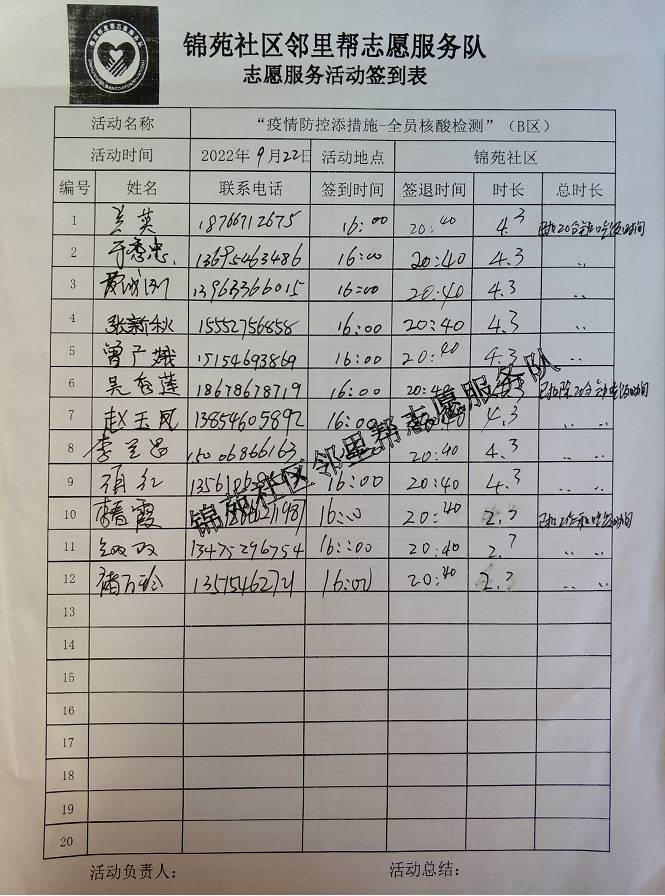 锦苑社区邻里帮志愿服务队
志愿服务活动签到表
活动名称 “疫情防控添措施-全员核酸检测”（B区）
活动时间 2022年9月22日 活动地点 锦苑社区
编号 姓名 联系电话 签到时间 签退时间 时长 总时长
1 兰英 18766712675 16:00 20:40 4.3
2 于秀忠 13695463486 16:00 20:40 4.3 〃
3 13963366015 16:00 20:40 4.3 〃
4 张新秋 15552756858 16:00 20:40 4.3 〃
5 曾广娥 15154693869 16:00 20:40 4.3 〃
6 吴秀莲 18678678719 16:00 20:40
7 赵玉凤 13854605892 16:00 20:40 4.3 〃 〃
8 李兰昌 15006866163 20:40 4.3 〃 〃
9 项红 16:00 20:40 4.3 〃 〃
10 霞 16:00 20:40
11 双双 13475296754 16:00 20:40 2.7 〃 〃
12 16:00 20:40 〃 〃
13
14
15
16
17
18
19
20
锦苑社区邻里帮志愿服务队
活动负责人： 活动总结：